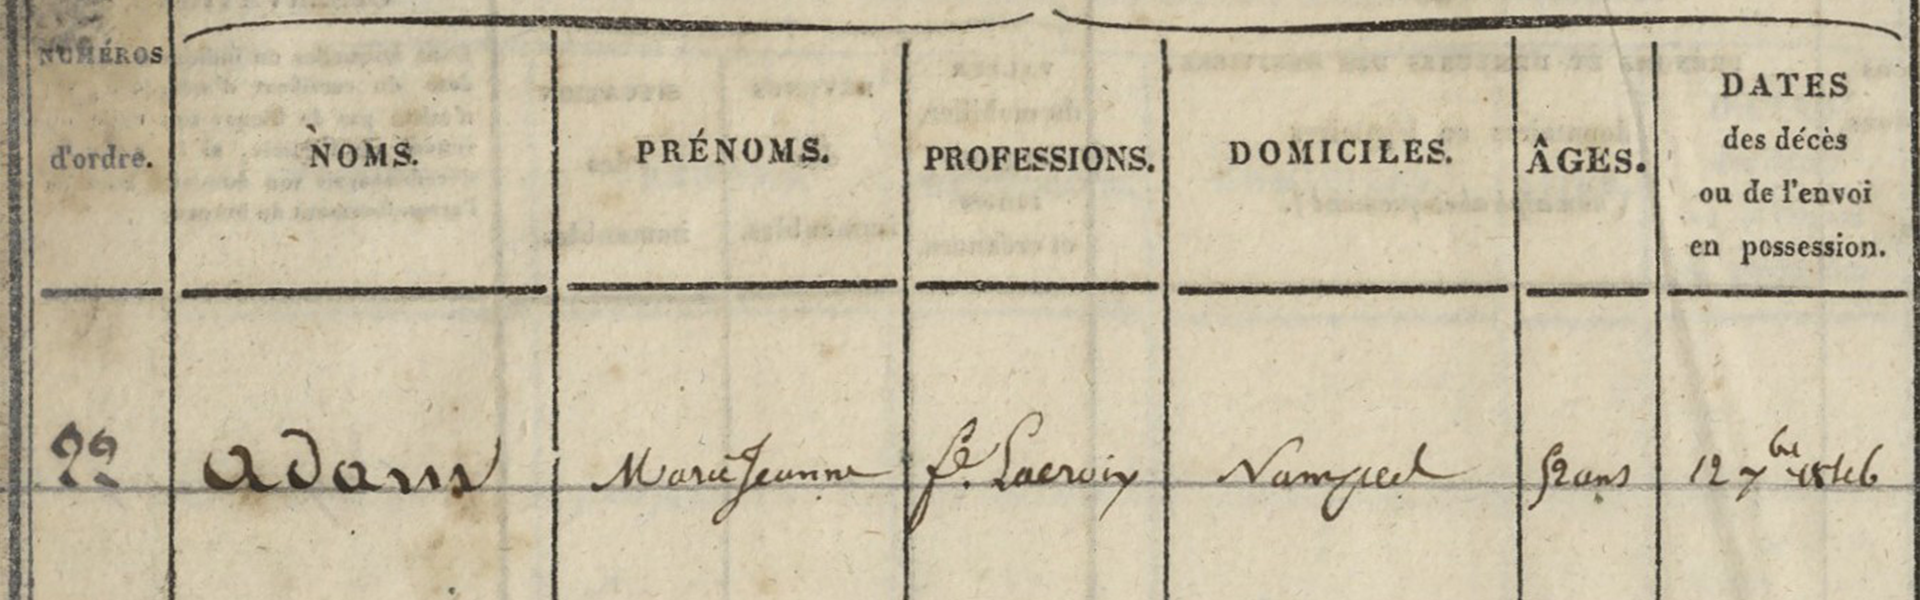 NUMÉROS
d'ordre.
NOMS.
PRÉNOMS.
PROFESSIONS.
DOMICILES.
ÂGES.
DATES
des décès
ou de l'envoi
en possession.
22 Adam Marie Jeanne fe. Lacroix Nampcel 52 ans 12 7bre 1846